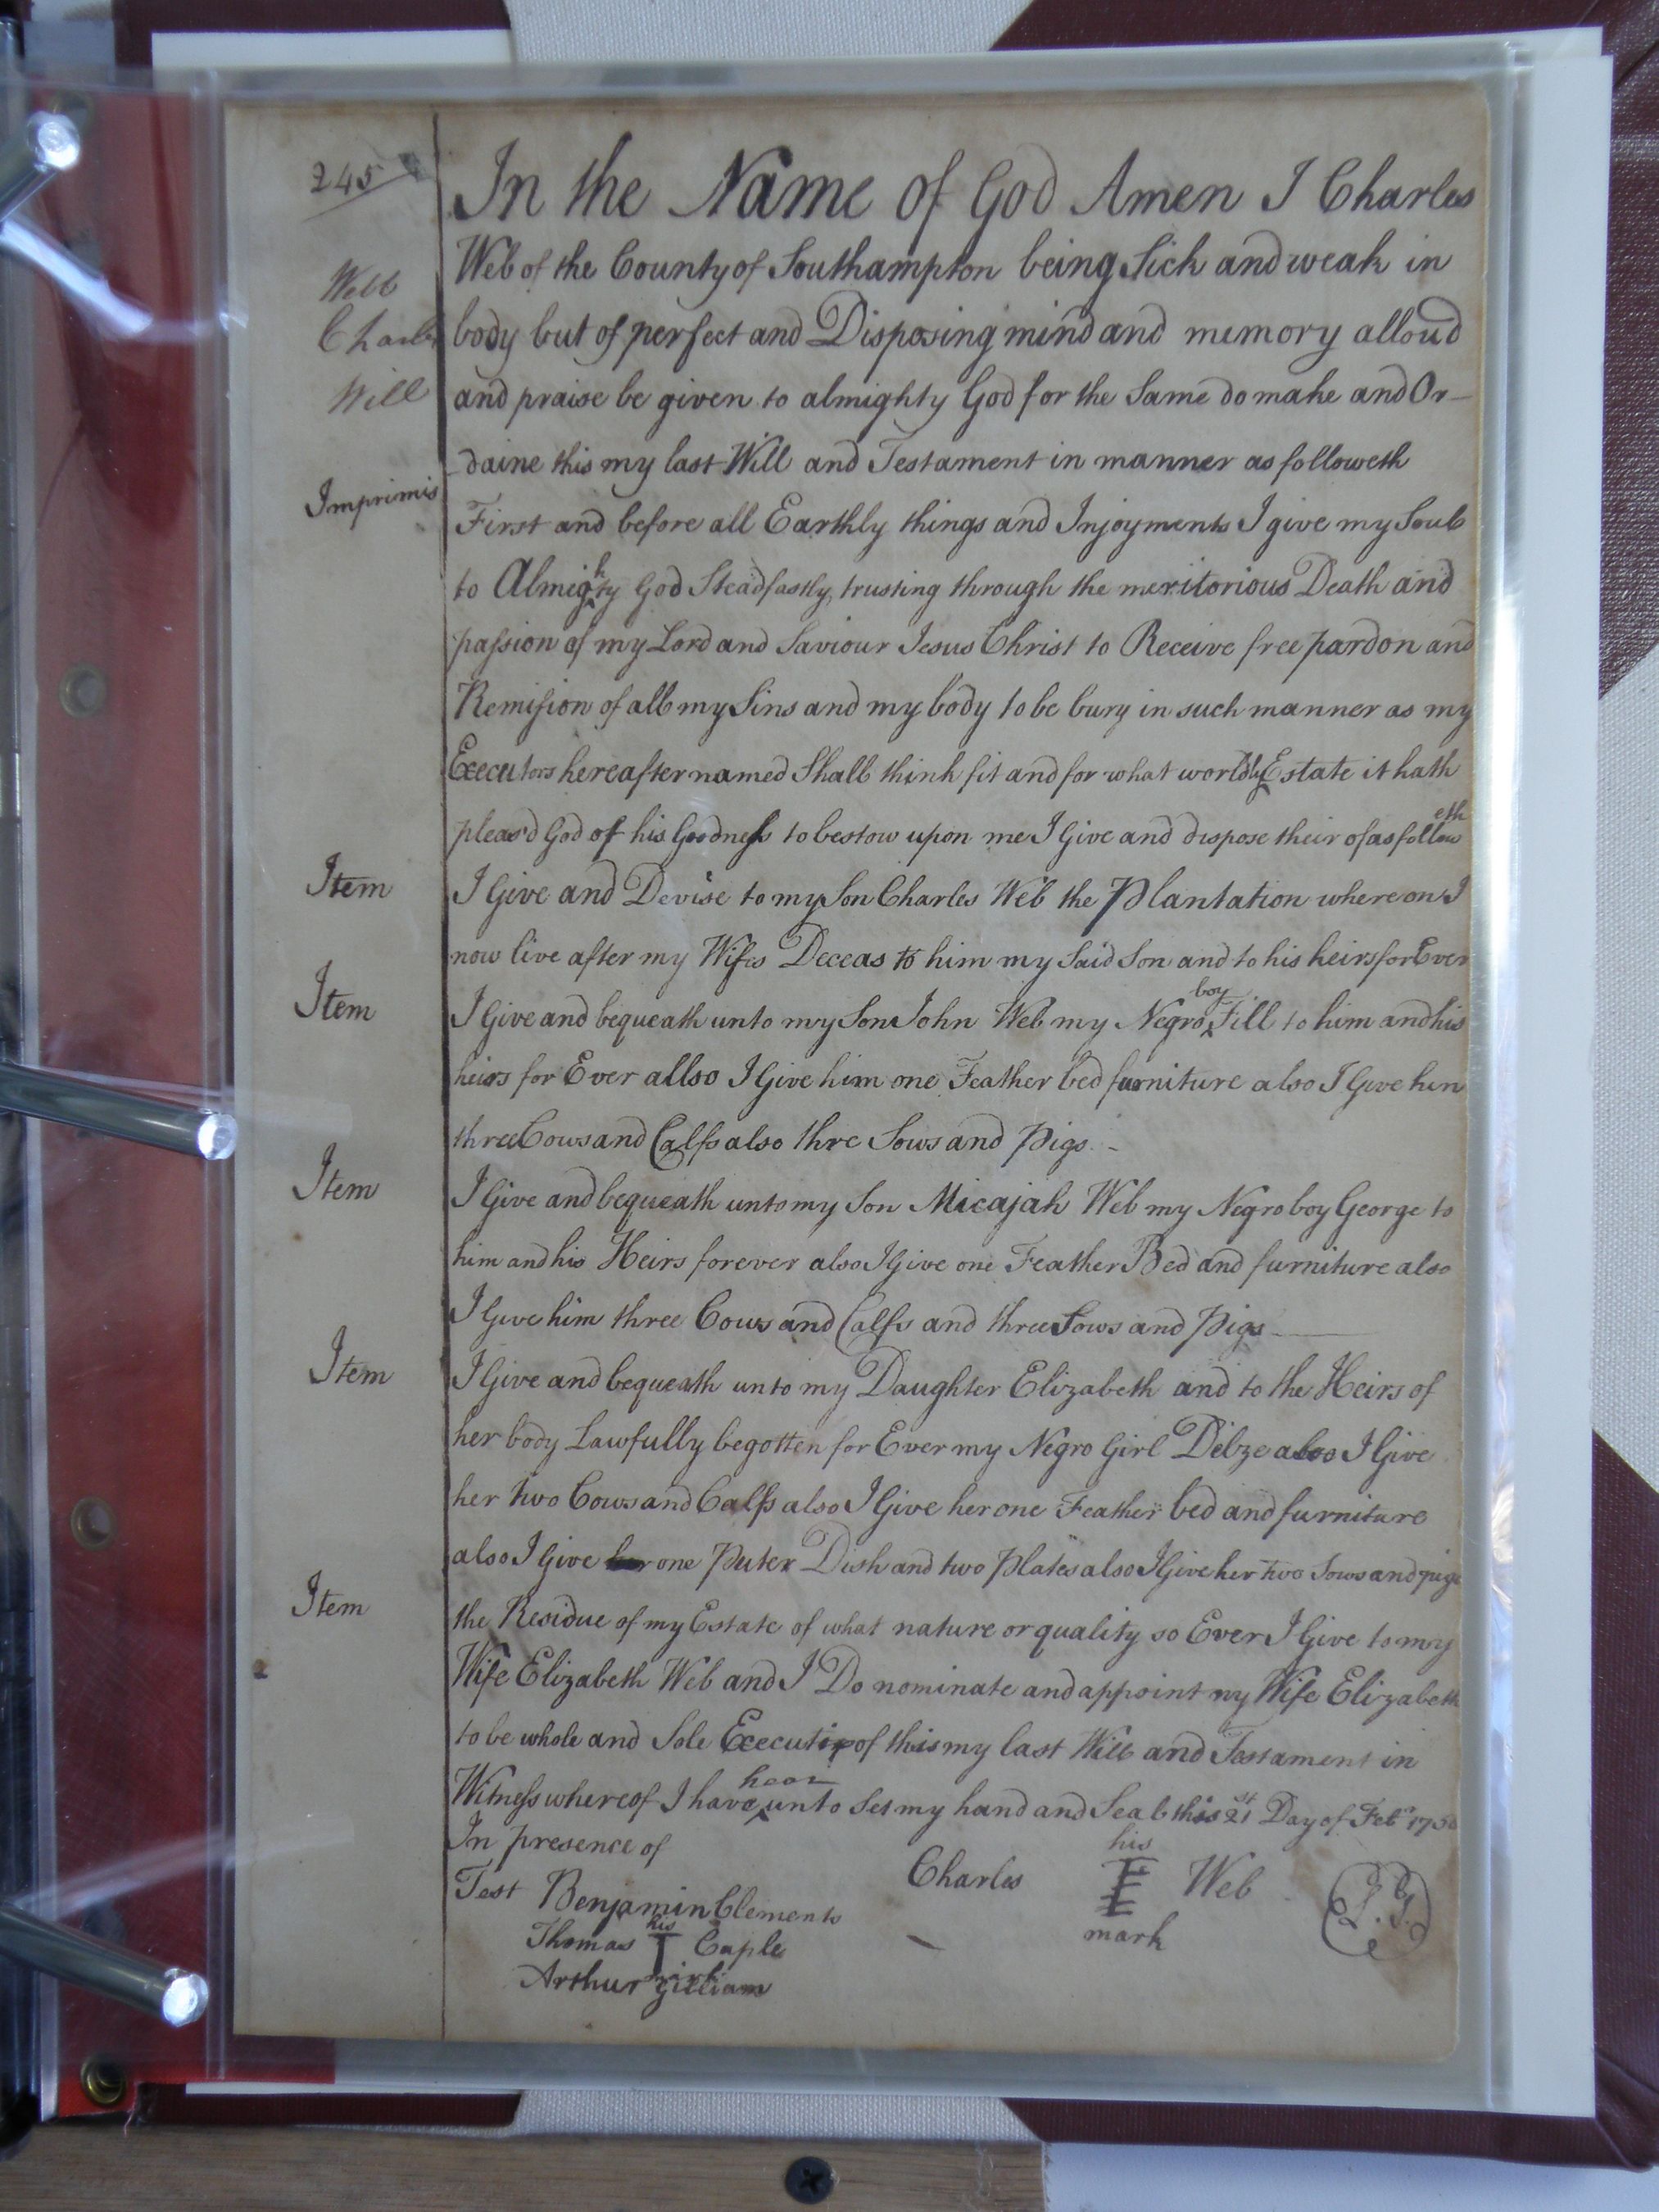 245
Webb
Charles
Will
In the Name of God Amen I Charles
Web of the County of Southampton being Sick and weak in
body but of perfect and Disposing mind and memory alloud
and praise be given to almighty God for the Same do make and Or-
daine this my last Will and Testament in manner as followeth
Imprimis
First and before all Earthly things and Injoyments I give my Soul
to Almighty God Steadfastly trusting through the meritorious Death and
passion of my Lord and Saviour Jesus Christ to Receive free pardon and
Remission of all my Sins and my body to be bury in such manner as my
Executors hereafter named Shall think fit and for what worldly Estate it hath
pleas'd God of his Goodness to bestow upon me I Give and dispose their of as followeth
Item I Give and Devise to my Son Charles Web the Plantation whereon I
now live after my Wifes Deceas to him my Said Son and to his heirs for Ever
Item I Give and bequeath unto my Son John Web my Negro boy Fill to him and his
heirs for Ever allso I Give him one Feather bed furniture also I Give him
three Cows and Calfs also thre Sows and Pigs -
Item I Give and bequeath unto my Son Micajah Web my Negro boy George to
him and his Heirs forever also I Give one Feather Bed and furniture also
I Give him three Cows and Calfs and three Sows and Pigs
Item I Give and bequeath unto my Daughter Elizabeth and to the Heirs of
her body Lawfully begotten for Ever my Negro Girl also I Give
her two Cows and Calfs also I Give her one Feather bed and furniture
also I Give her one Puter Dish and two Plates also I Give her two Sows and pigs
Item the Residue of my Estate of what nature or quality so Ever I Give to my
Wife Elizabeth Web and I Do nominate and appoint my Wife Elizabeth
to be whole and Sole of this my last Will and Testament in
Witness whereof I have hear unto Set my hand and Seal this 21st Day of Feb
In presence of
Test Benjamin Clements
Thomas his T mark Caple
Arthur Gilliam
Charles his mark Web